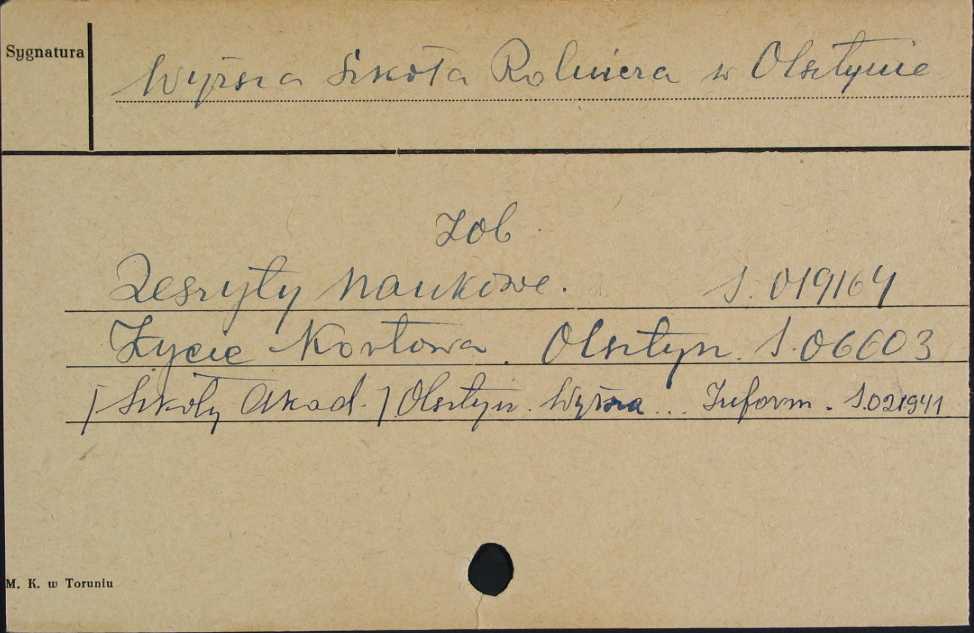 Sygnatura
Wyższa Szkoła Rolnicza w Olsztynie
Zob
Zeszyty naukowe. S. 019164
Życie Kortowa. Olsztyn. S. 06603
/Szkoły Akad./ Olsztyn. Wyższa ... Inform. S.021941
M. K. w Toruniu